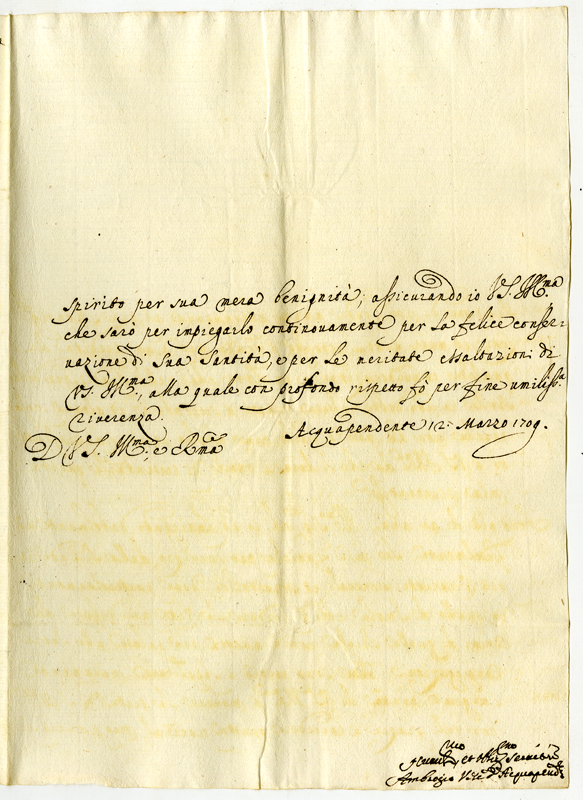 spirito per sua mera benignità; assicurando io VS. Ill.ma
che sarò per impiegarlo continouamente per la felice conser-
uazione di Sua Santità, e per le meritate essaltazioni di
VS. Ill.ma, alla quale con profondo rispetto fò per fine umiliss.a
riverenza.
Acquapendente 12 Marzo 1709.
D VS. Ill.ma, e R.ma
Humil.mo et
Ambrogio d'Acquapend.e